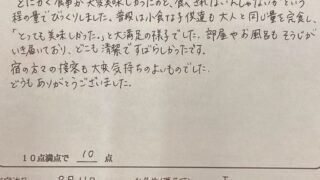 とにかく食事が大変美味しかったのと、食べきれないんじゃないかという
程の量でびっくりしました。普段は小食な子供達も大人と同じ量を完食し、
「とっても美味しかった。」と大満足の様子でした。部屋やお風呂もそうじが
いき届いており、どこも清潔ですばらしかったです。
宿の方々の接客も大変気持ちのよいものでした。
どうもありがとうございました。
10点満点で 10 点